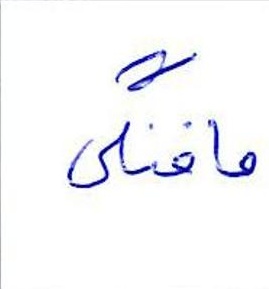 مافنگی